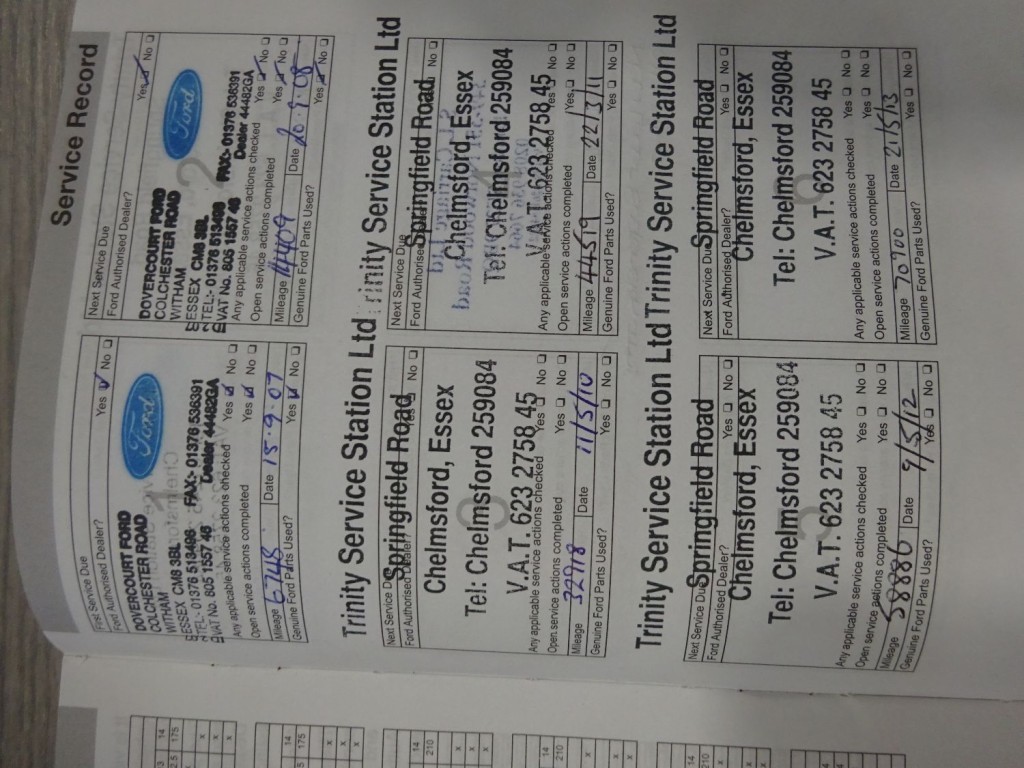 Service Record
First Service Due
Ford Authorised Dealer? Yes No
DOVERCOURT FORD
COLCHESTER ROAD
WITHAM
ESSEX CM8 3BL
TEL:- 01376 513496 FAX:- 01376 536391
VAT No. 805 1557 46 Dealer 44482GA
Any applicable service actions checked Yes No
Open service actions completed Yes No
Mileage 6748 Date 15.9.07
Genuine Ford Parts Used? Yes No
Next Service Due
Ford Authorised Dealer? Yes No
DOVERCOURT FORD
COLCHESTER ROAD
WITHAM
ESSEX CM8 3BL
TEL:- 01376 513496 FAX:- 01376 536391
VAT No. 805 1557 46 Dealer 44482GA
Any applicable service actions checked Yes No
Open service actions completed Yes No
Mileage Date 20.9.08
Genuine Ford Parts Used? Yes No
Trinity Service Station Ltd
Next Service Due
Springfield Road
Ford Authorised Dealer? No
Chelmsford, Essex
Tel: Chelmsford 259084
3
V.A.T. 623 2758 45
Any applicable service actions checked Yes No
Open service actions completed Yes No
Mileage 32918 Date 11/5/10
Genuine Ford Parts Used? Yes No
Trinity Service Station Ltd
Next Service Due
Springfield Road
Ford Authorised No
Chelmsford, Essex
Tel: Chelmsford 259084
V.A.T. 623 2758 45
Any applicable service actions checked Yes No
Open service actions completed Yes No
Mileage 44519 Date 22/3/11
Genuine Ford Parts Used? Yes No
Trinity Service Station Ltd
Next Service Due
Springfield Road
Ford Authorised Dealer? Yes No
Chelmsford, Essex
Tel: Chelmsford 259084
5
V.A.T. 623 2758 45
Any applicable service actions checked Yes No
Open service actions completed Yes No
Mileage 58886 Date 9/5/12
Genuine Ford Parts Used? Yes No
Trinity Service Station Ltd
Next Service Due
Springfield Road
Ford Authorised Dealer? Yes No
Chelmsford, Essex
Tel: Chelmsford 259084
6
V.A.T. 623 2758 45
Any applicable service actions checked Yes No
Open service actions completed Yes No
Mileage 70700 Date 21/5/13
Genuine Ford Parts Used? Yes No